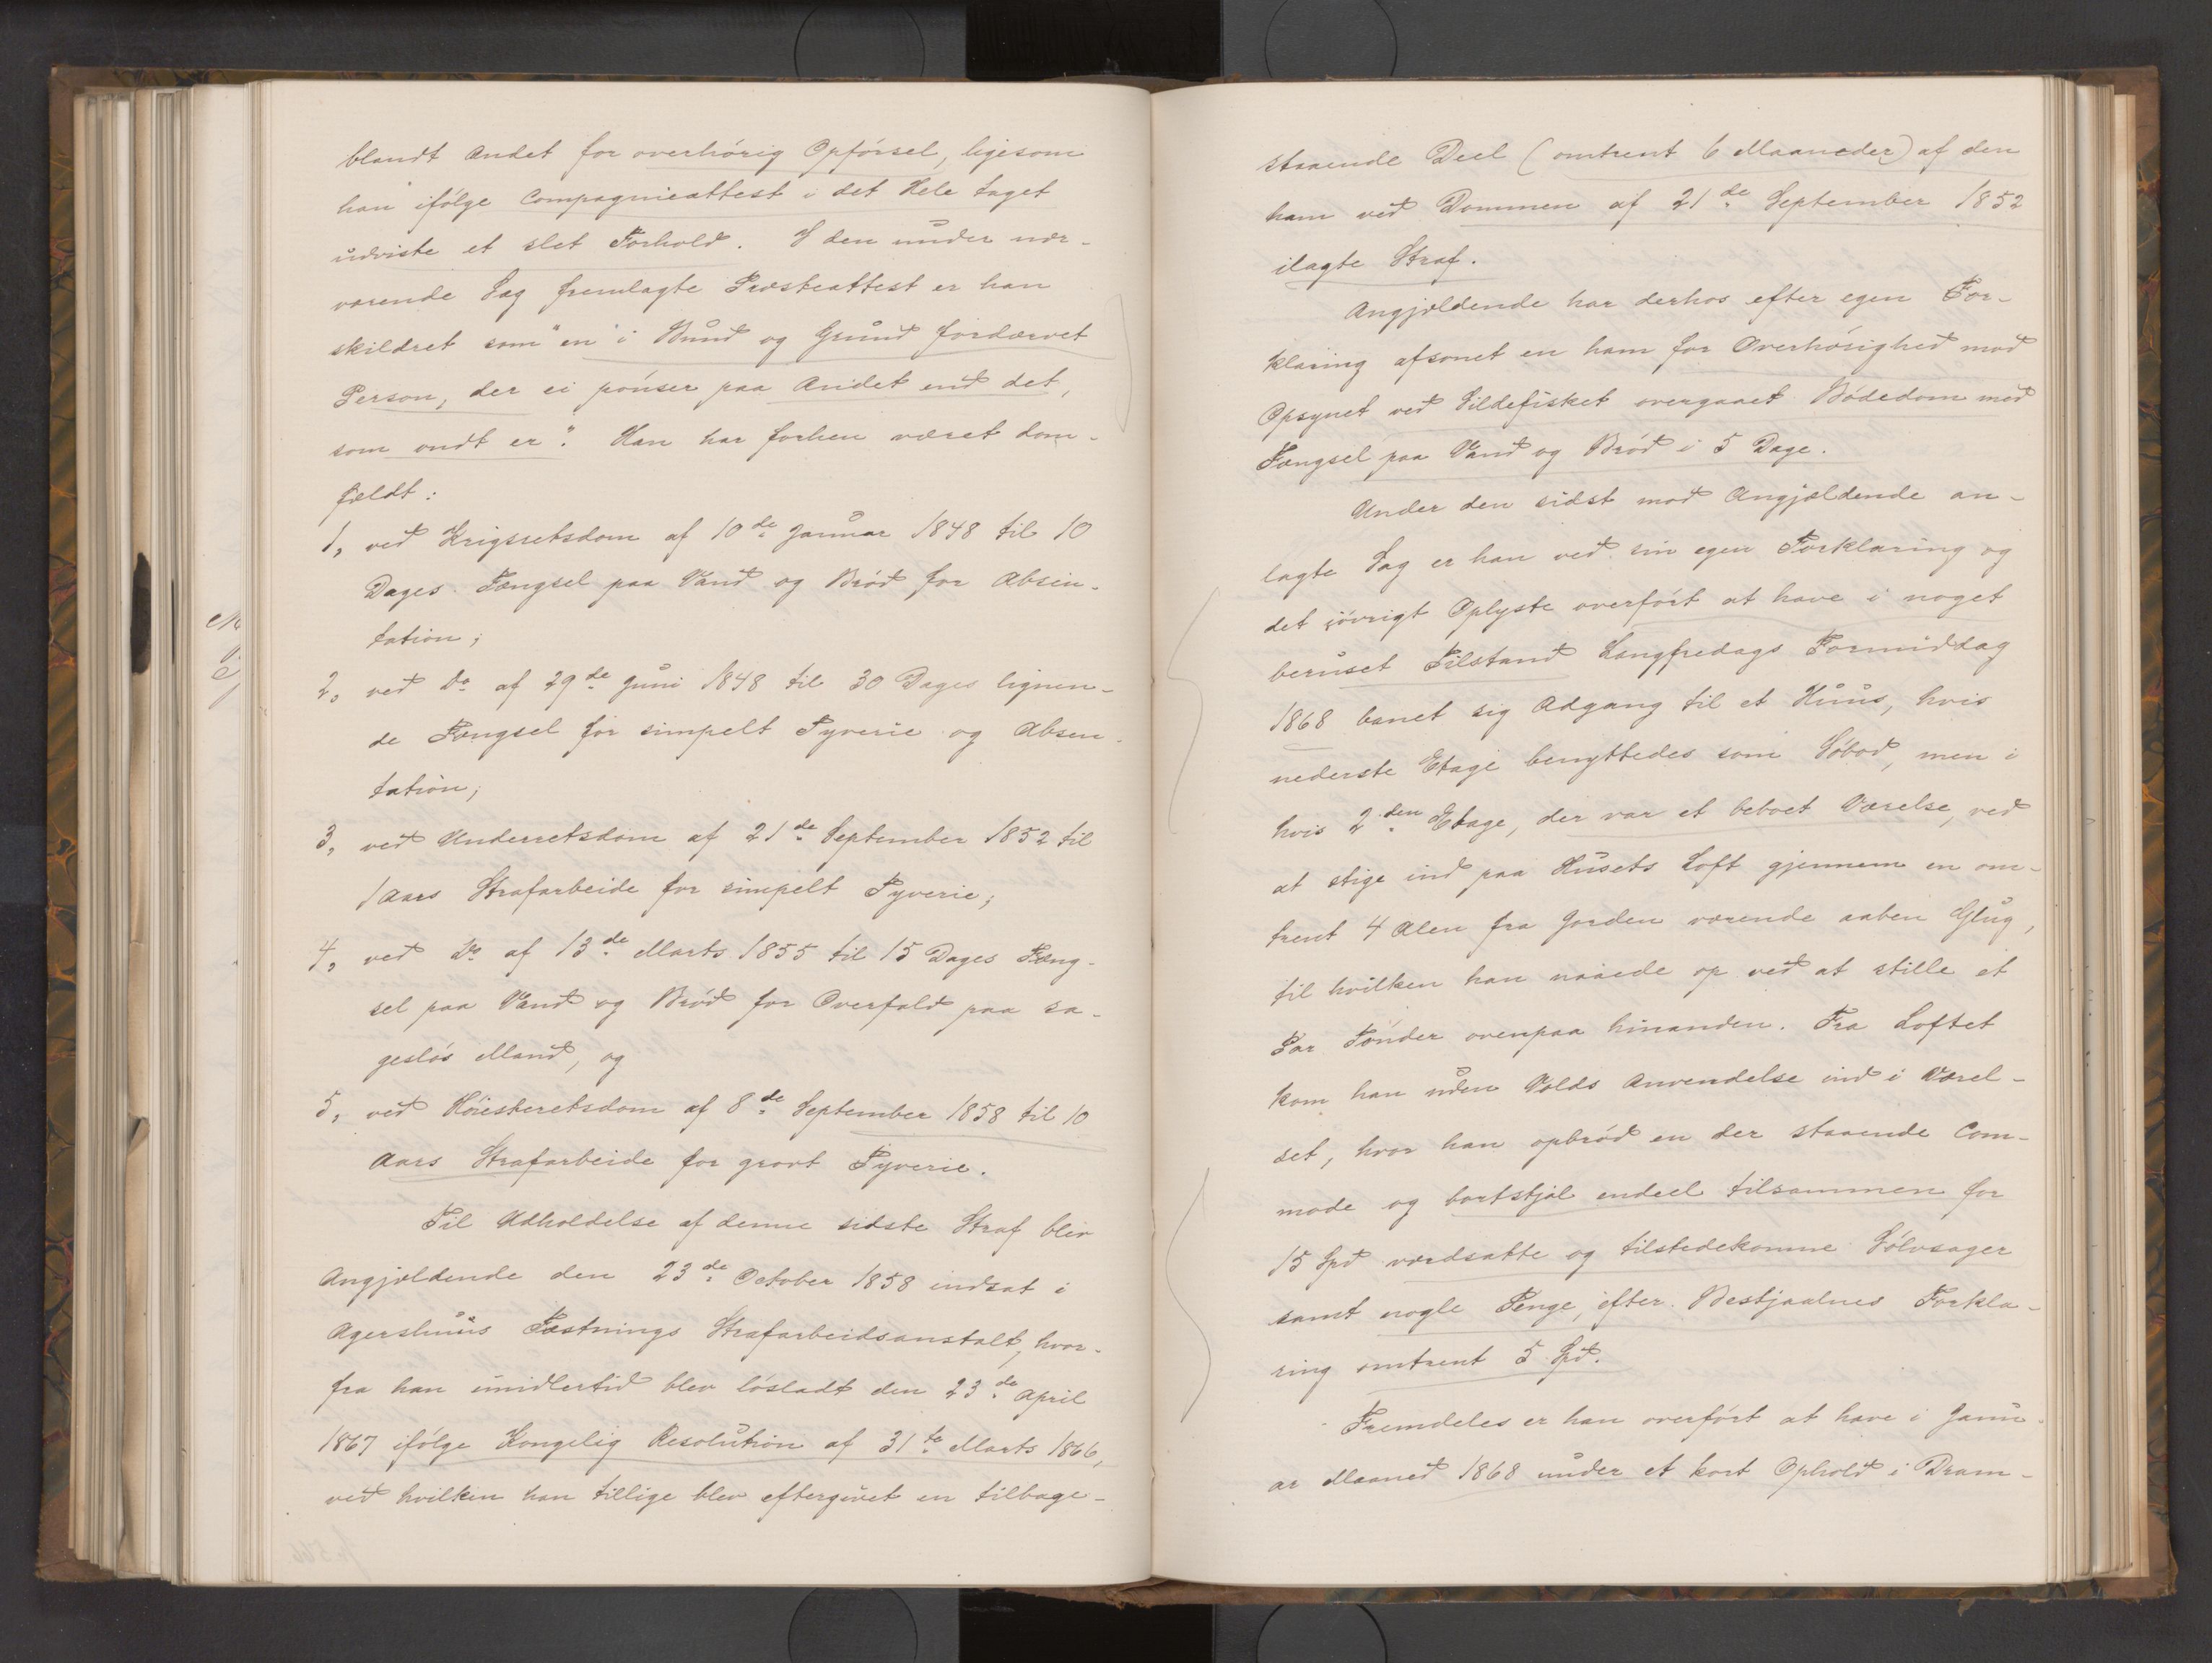 blandt Andet for overhörig Opförsel, ligesom
han ifölge Compagnieattest i det Hele taget
udviste et slet Forhold. I den under nær-
værende Sag fremlagte Præsteattest er han
skildret som "en i Bund og Grund fordærvet
Person, der ei pönser paa Andet end det,
som ondt er". Han har forhen været dom-
fældt:
1, ved Krigsretsdom af 10de Januar 1848 til 10
Dages Fængsel paa Vand og Bröd for Absen-
tation;
2, ved Do af 29de Juni 1848 til 30 Dages lignen-
de Fængsel for simpelt Tyverie og Absen-
tation;
3, ved Underretsdom af 21de September 1852 til
1 Aars Strafarbeide for simpelt Tyverie;
4, ved Do af 13de Marts 1855 til 15 Dages Fæng-
sel paa Vand og Bröd for Overfald paa sa-
geslös Mand, og
5, ved Höiesteretsdom af 8de September 1858 til 10
Aars Strafarbeide for grovt Tyverie.
Til Udholdelse af denne sidste Straf blev
Angjældende den 23de October 1858 indsat i
Agershuus Fæstnings Strafarbeidsanstalt, hvor-
fra han imidlertid blev lösladt den 23de April
1867 ifölge Kongelig Resolution af 31te Marts 1866,
ved hvilken han tillige blev eftergivet en tilbage-
staaende Deel (omtrent 6 Maaneder) af den
ham ved Dommen af 21de September 1852
ilagte Straf.
Angjældende har derhos efter egen For-
klaring afsonet en ham for Overhörighed mod
Opsynet ved Sildefisket overgaaet Bödedom med
Fængsel paa Vand og Bröd i 5 Dage.
Under den sidst mod Angjældende an-
lagte Sag er han ved sin egen Forklaring og
det iövrigt Oplyste overfört at have i noget
beruset Tilstand Langfredags Formiddag
1868 banet sig Adgang til et Huus, hvis
nederste Etage benyttedes som Söbod, men i
hvis 2den Etage, der var et beboet Værelse, ved
at stige ind paa Husets Loft gjennem en om-
trent 4 Alen fra Jorden værende aaben Glug,
til hvilken han naaede op ved at stille et
Par Tönder ovenpaa hinanden. Fra Loftet
kom han uden Volds Anvendelse ind i Værel-
set, hvor han opbröd en der staaende Com-
mode og bortstjal endeel tilsammen for
15 Spd værdsatte og tilstedekomne Sölvsager
samt nogle Penge, efter Bestjaalnes Forkla-
ring omtrent 5 Spd.
Fremdeles er han overfört at have i Janu-
ar Maaned 1868 under et kort Ophold i Dram-